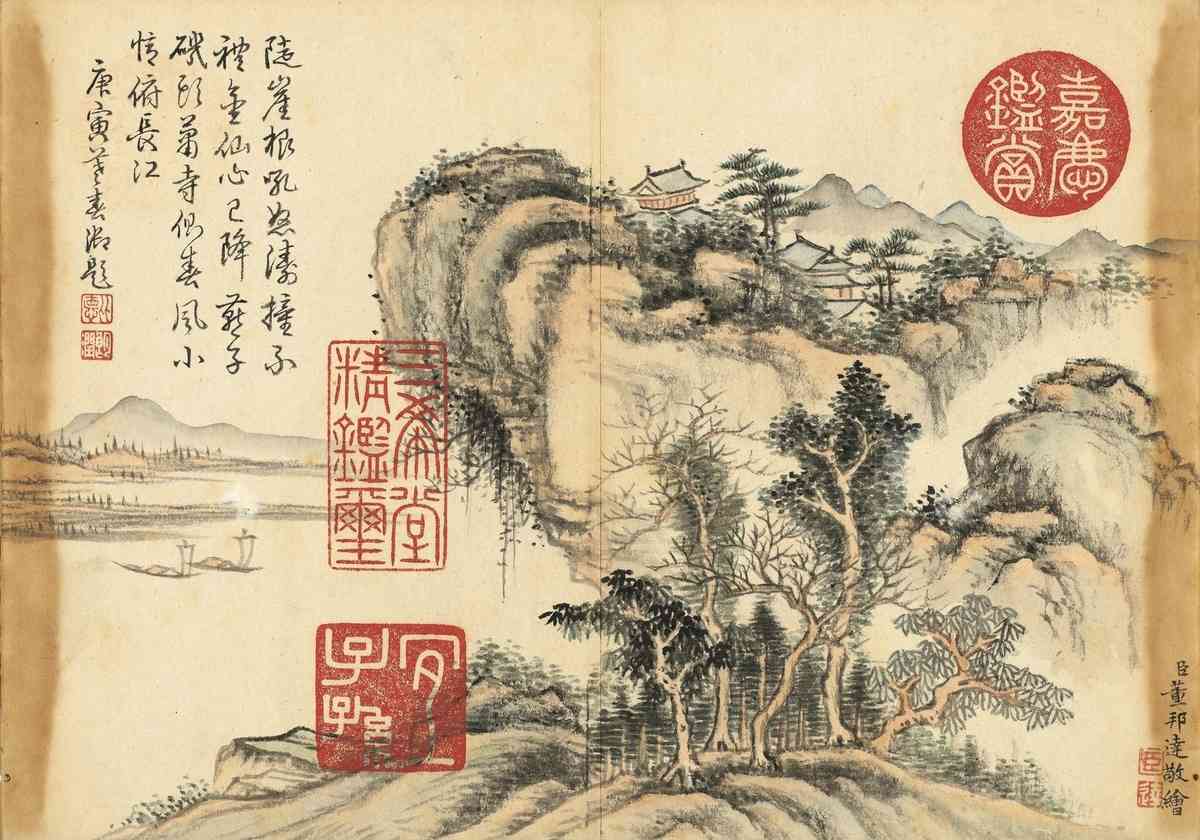 嘉慶
鑑賞
陡崖根吼怒濤撞不
禮金仙心已降燕子
磯頭蕭寺似春風小
俯長江
庚寅莫春御題
三希堂
精鑑璽
宜
子孫
臣董邦達敬繪